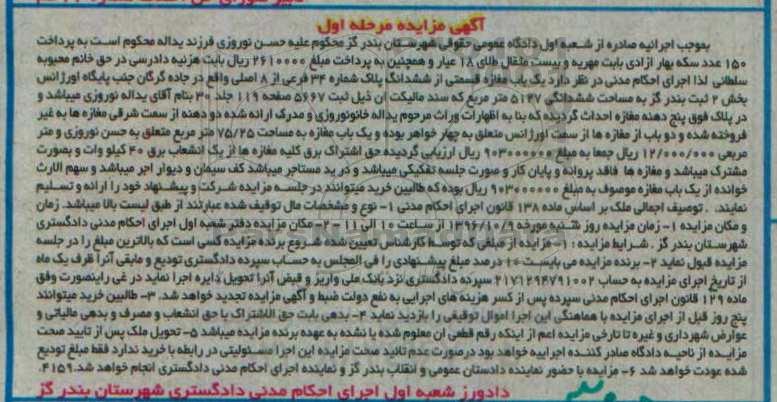 آگهی مزایده مرحله اول
بموجب اجرائیه صادره از شعبه اول دادگاه عمومی حقوقی شهرستان بندر گز محکوم علیه حسن نوروزی فرزند یداله محکوم است به پرداخت
۱۵۰ عدد سکه بهار ازادی بابت مهریه و بیست مثقال طلای ۱۸ عیار و همچنین به پرداخت مبلغ ۲۶۱۰۰۰۰ ریال بابت هزینه دادرسی در حق خانم محبوبه
سلطانی لذا اجرای احکام مدنی در نظر دارد یک باب مغازه قسمتی از ششدانگ پلاک شماره ۳۴ فرعی از ۸ اصلی واقع در جاده گرگان جنب پایگاه اورژانس
بخش ۲ ثبت بندر گز به مساحت ششدانگی ۵۱۴۷ متر مربع که سند مالکیت آن ذیل ثبت ۵۶۶۷ صفحه ۱۱۹ جلد ۳۰ بنام آقای یداله نوروزی میباشد و
در پلاک فوق پنج دهنه مغازه احداث گردیده که بنا به اظهارات وراث مرحوم یداله خانونوروزی و مدرک ارائه شده دو دهنه از سمت شرقی مغازه ها به غیر
فروخته شده و دو باب از مغازه ها از سمت اورژانس متعلق به چهار خواهر بوده و یک باب مغازه به مساحت ۷۵/۲۵ متر مربع متعلق به حسن نوروزی و متر
مربعی ۱۲/۰۰۰/۰۰۰ ریال جمعا به مبلغ ۹۰۳۰۰۰۰۰۰ ریال ارزیابی گردیده حق اشتراک برق کلیه مغازه ها از یک انشعاب برق ۴۰ کیلو وات و بصورت
مشترک میباشد و مغازه ها فاقد پروانه و پایان کار و صورت جلسه تفکیکی میباشد و در ید مستاجر میباشد کف سیمان و دیوار اجر میباشد و سهم الارث
خوانده از یک باب مغازه موصوف به مبلغ ۹۰۳۰۰۰۰۰۰ ریال بوده که طالبین خرید میتوانند در جلسه مزایده شرکت و پیشنهاد خود را ارائه و تسلیم
نمایند. . توصیف اجمالی ملک بر اساس ماده ۱۳۸ قانون اجرای احکام مدنی ۱- نوع و مشخصات مال توقیف شده عبارتند از طبق لیست بالا میباشد. زمان
و مکان مزایده ۱- زمان مزایده روز شنبه مورخه ۱۳۹۶/۱۰/۹ از ساعت ۱۰ الی ۱۱ - ۲- مکان مزایده دفتر شعبه اول اجرای احکام مدنی دادگستری
شهرستان بندر گز . شرایط مزایده : ۱- مزایده از مبلغی که توسط کارشناس تعیین شده شروع برنده مزایده کسی است که بالاترین مبلغ را در جلسه
مزایده قبول نماید ۲- برنده مزایده می بایست ۱۰ درصد مبلغ پیشنهادی را فی المجلس به حساب سپرده دادگستری تودیع و مابقی آنرا ظرف یک ماه
از تاریخ اجرای مزایده به حساب ۲۱۷۱۲۹۴۷۹۱۰۰۲ سپرده دادگستری نزد بانک ملی واریز و قبض آنرا تحویل دایره اجرا نماید در غی راینصورت وفق
ماده ۱۲۹ قانون اجرای احکام مدنی سپرده پس از کسر هزینه های اجرایی به نفع دولت ضبط و آگهی مزایده تجدید خواهد شد. ۳- طالبین خرید میتوانند
پنج روز قبل از اجرای مزایده با هماهنگی این اجرا اموال توقیفی را بازدید نماید ۴- بدهی بابت حق الاشتراک یا حق انشعاب و مصرف و بدهی مالیاتی و
عوارض شهرداری و غیره تا تارخی مزایده اعم از اینکه رقم قطعی ان معلوم شده یا نشده به عهده برنده مزایده میباشد ۵- تحویل ملک پس از تایید صحت
مزایده از ناحیه دادگاه صادر کننده اجراییه خواهد بود درصورت عدم تائید صحت مزایده این اجرا مسئولیتی در رابطه با خرید ندارد فقط مبلغ تودیع
شده عودت خواهد شد ۶- مزایده با حضور نماینده دادستان عمومی و انقلاب بندر گز و نماینده اجرای احکام مدنی دادگستری انجام خواهد شد.۴۱۵۹.
دادورز شعبه اول اجرای احکام مدنی دادگستری شهرستان بندر گز